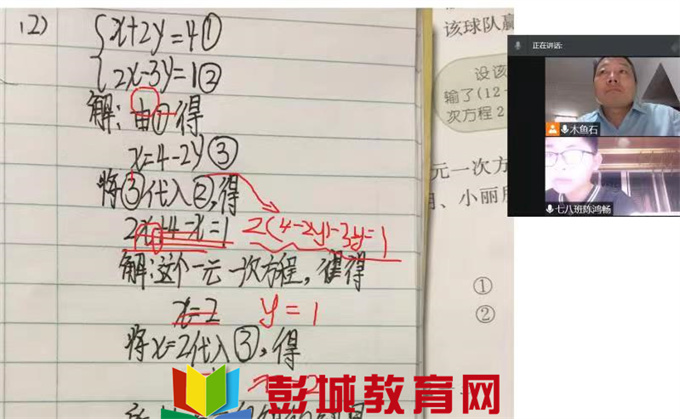 (2) {x+2y=4①
{2x-3y=1②
解:由①得
x=4-2y③
将③代入②,得
2x+4-x=1 2(4-2y)-3y=1
解:这个一元一次方程,得
x=2 y=1
将x=2代入③,得
该球队赢
设该
输了(12-
次方程2
元一次方
、小丽
①
②
正在讲话:
木鱼石
七八班陈鸿畅
彭城教育网